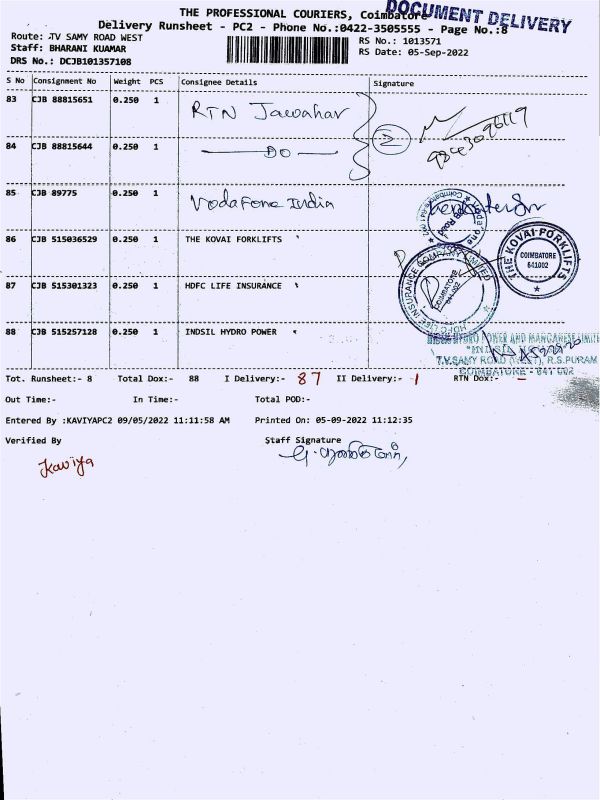 THE PROFESSIONAL COURIERS, Coimbatore
DOCUMENT DELIVERY
Delivery Runsheet - PC2 - Phone No.:0422-3505555 - Page No.:8
Route: .TV SAMY ROAD WEST
RS No.: 1013571
Staff: BHARANI KUAMAR
RS Date: 05-Sep-2022
DRS No.: DCJB101357108
S No Consignment No Weight PCS Consignee Details Signature
83 CJB 88815651 0.250 1 RTN Jawahar
84 CJB 88815644 0.250 1 DO 2 9843096119
85 CJB 89775 0.250 1 Vodafone India
86 CJB 515036529 0.250 1 THE KOVAI FORKLIFTS
THE KOVAI FORKLIFTS COIMBATORE 641002
87 CJB 515301323 0.250 1 HDFC LIFE INSURANCE
HDFC LIFE INSURANCE COMPANY LIMITED COIMBATORE 641002
88 CJB 515257128 0.250 1 INDSIL HYDRO POWER
INDSIL HYDRO POWER AND MANGANESE LIMITE
T.V.SAMY ROAD (WEST), R.S.PURAM
COIMBATORE - 641 002
Tot. Runsheet:- 8 Total Dox:- 88 I Delivery:- 87 II Delivery:- 1 RTN Dox:- -
Out Time:- In Time:- Total POD:-
Entered By :KAVIYAPC2 09/05/2022 11:11:58 AM Printed On: 05-09-2022 11:12:35
Verified By Staff Signature
Kaviya